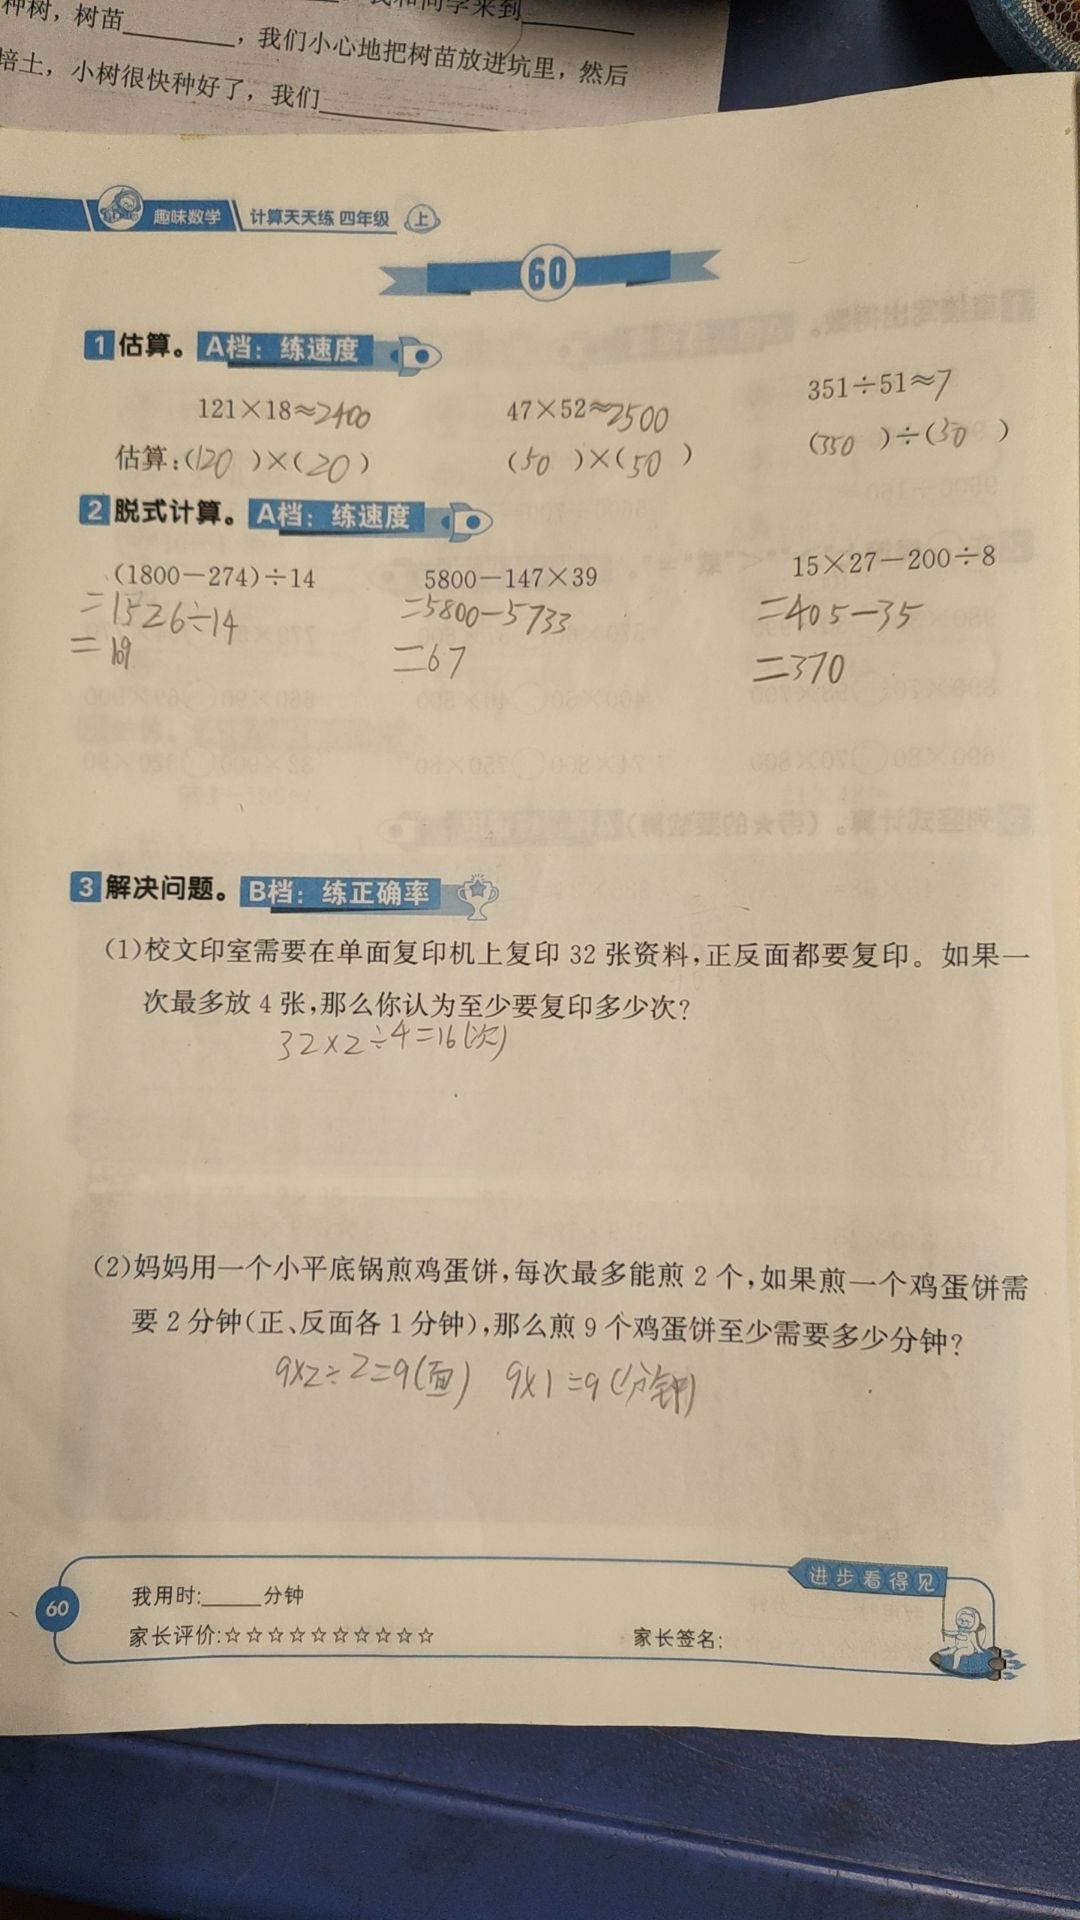 种树，树苗________，我们小心地把树苗放进坑里，然后
培土，小树很快种好了，我们________
趣味数学 计算天天练 四年级 上
60
1 估算。 A档：练速度
121×18≈2400 47×52≈2500 351÷51≈7
估算：(120)×(20) (50)×(50) (350)÷(50)
2 脱式计算。 A档：练速度
(1800－274)÷14 5800－147×39 15×27－200÷8
=1526÷14 =5800－5733 =405－35
=109 =67 =370
3 解决问题。 B档：练正确率
(1)校文印室需要在单面复印机上复印 32 张资料，正反面都要复印。如果一
次最多放 4 张，那么你认为至少要复印多少次？
32×2÷4=16(次)
(2)妈妈用一个小平底锅煎鸡蛋饼，每次最多能煎 2 个，如果煎一个鸡蛋饼需
要 2 分钟(正、反面各 1 分钟)，那么煎 9 个鸡蛋饼至少需要多少分钟？
9×2÷2=9(面) 9×1=9(分钟)
进步看得见
我用时:_____分钟
60
家长评价:☆☆☆☆☆☆☆☆☆☆ 家长签名: